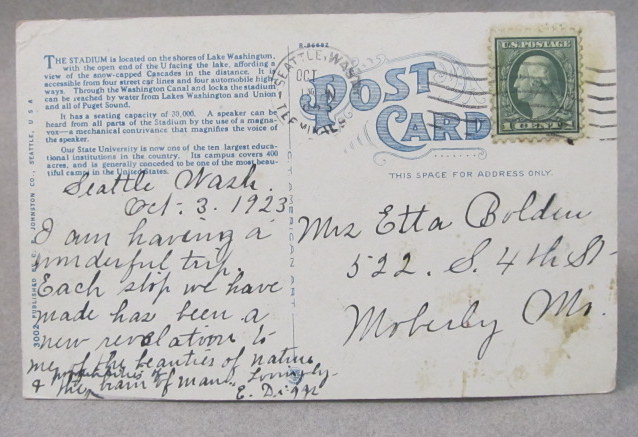 THE STADIUM is located on the shores of Lake Washington,
with the open end of the U facing the lake, affording a
view of the snow-capped Cascades in the distance. It is
accessible from four street car lines and four automobile high-
ways. Through the Washington Canal and locks the stadium
can be reached by water from Lakes Washington and Union
and all of Puget Sound.
It has a seating capacity of 30,000. A speaker can be
heard from all parts of the Stadium by the use of a magna-
vox—a mechanical contrivance that magnifies the voice of
the speaker.
Our State University is now one of the ten largest educa-
tional institutions in the country. Its campus covers 400
acres, and is generally conceded to be one of the most beau-
tiful camps in the United States.
Seattle Wash.
Oct. 3. 1923
I am having a
wonderful trip.
Each stop we have
made has been a
new revelation to
me of the beauties of nature
& the brain of man. Lovingly.
E.
3002 PUBLISHED BY C. JOHNSTON CO., SEATTLE, U S A
POST
CARD
SEATTLE, WASH.
OCT
U.S. POSTAGE
1 CENT 1
THIS SPACE FOR ADDRESS ONLY.
Mrs Etta Bolden
522. S. 4th St
Moberly Mo.